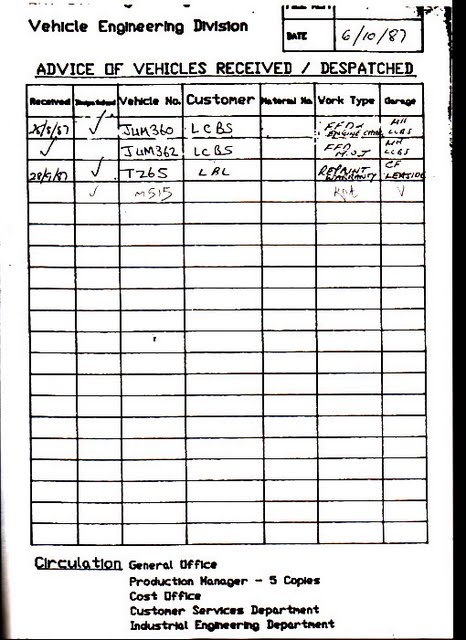 Vehicle Engineering Division
DATE 6/10/87
ADVICE OF VEHICLES RECEIVED / DESPATCHED
Received Despatched Vehicle No. Customer Material No. Work Type Garage
✓ JUM360 LCBS ENGINE LCBS
✓ JUM362 LCBS M.O.T LCBS
28/9/87 ✓ T265 LRL REPAINT WARRANTY CF LEASIDE
✓ MS15
Circulation General Office
Production Manager - 5 Copies
Cost Office
Customer Services Department
Industrial Engineering Department